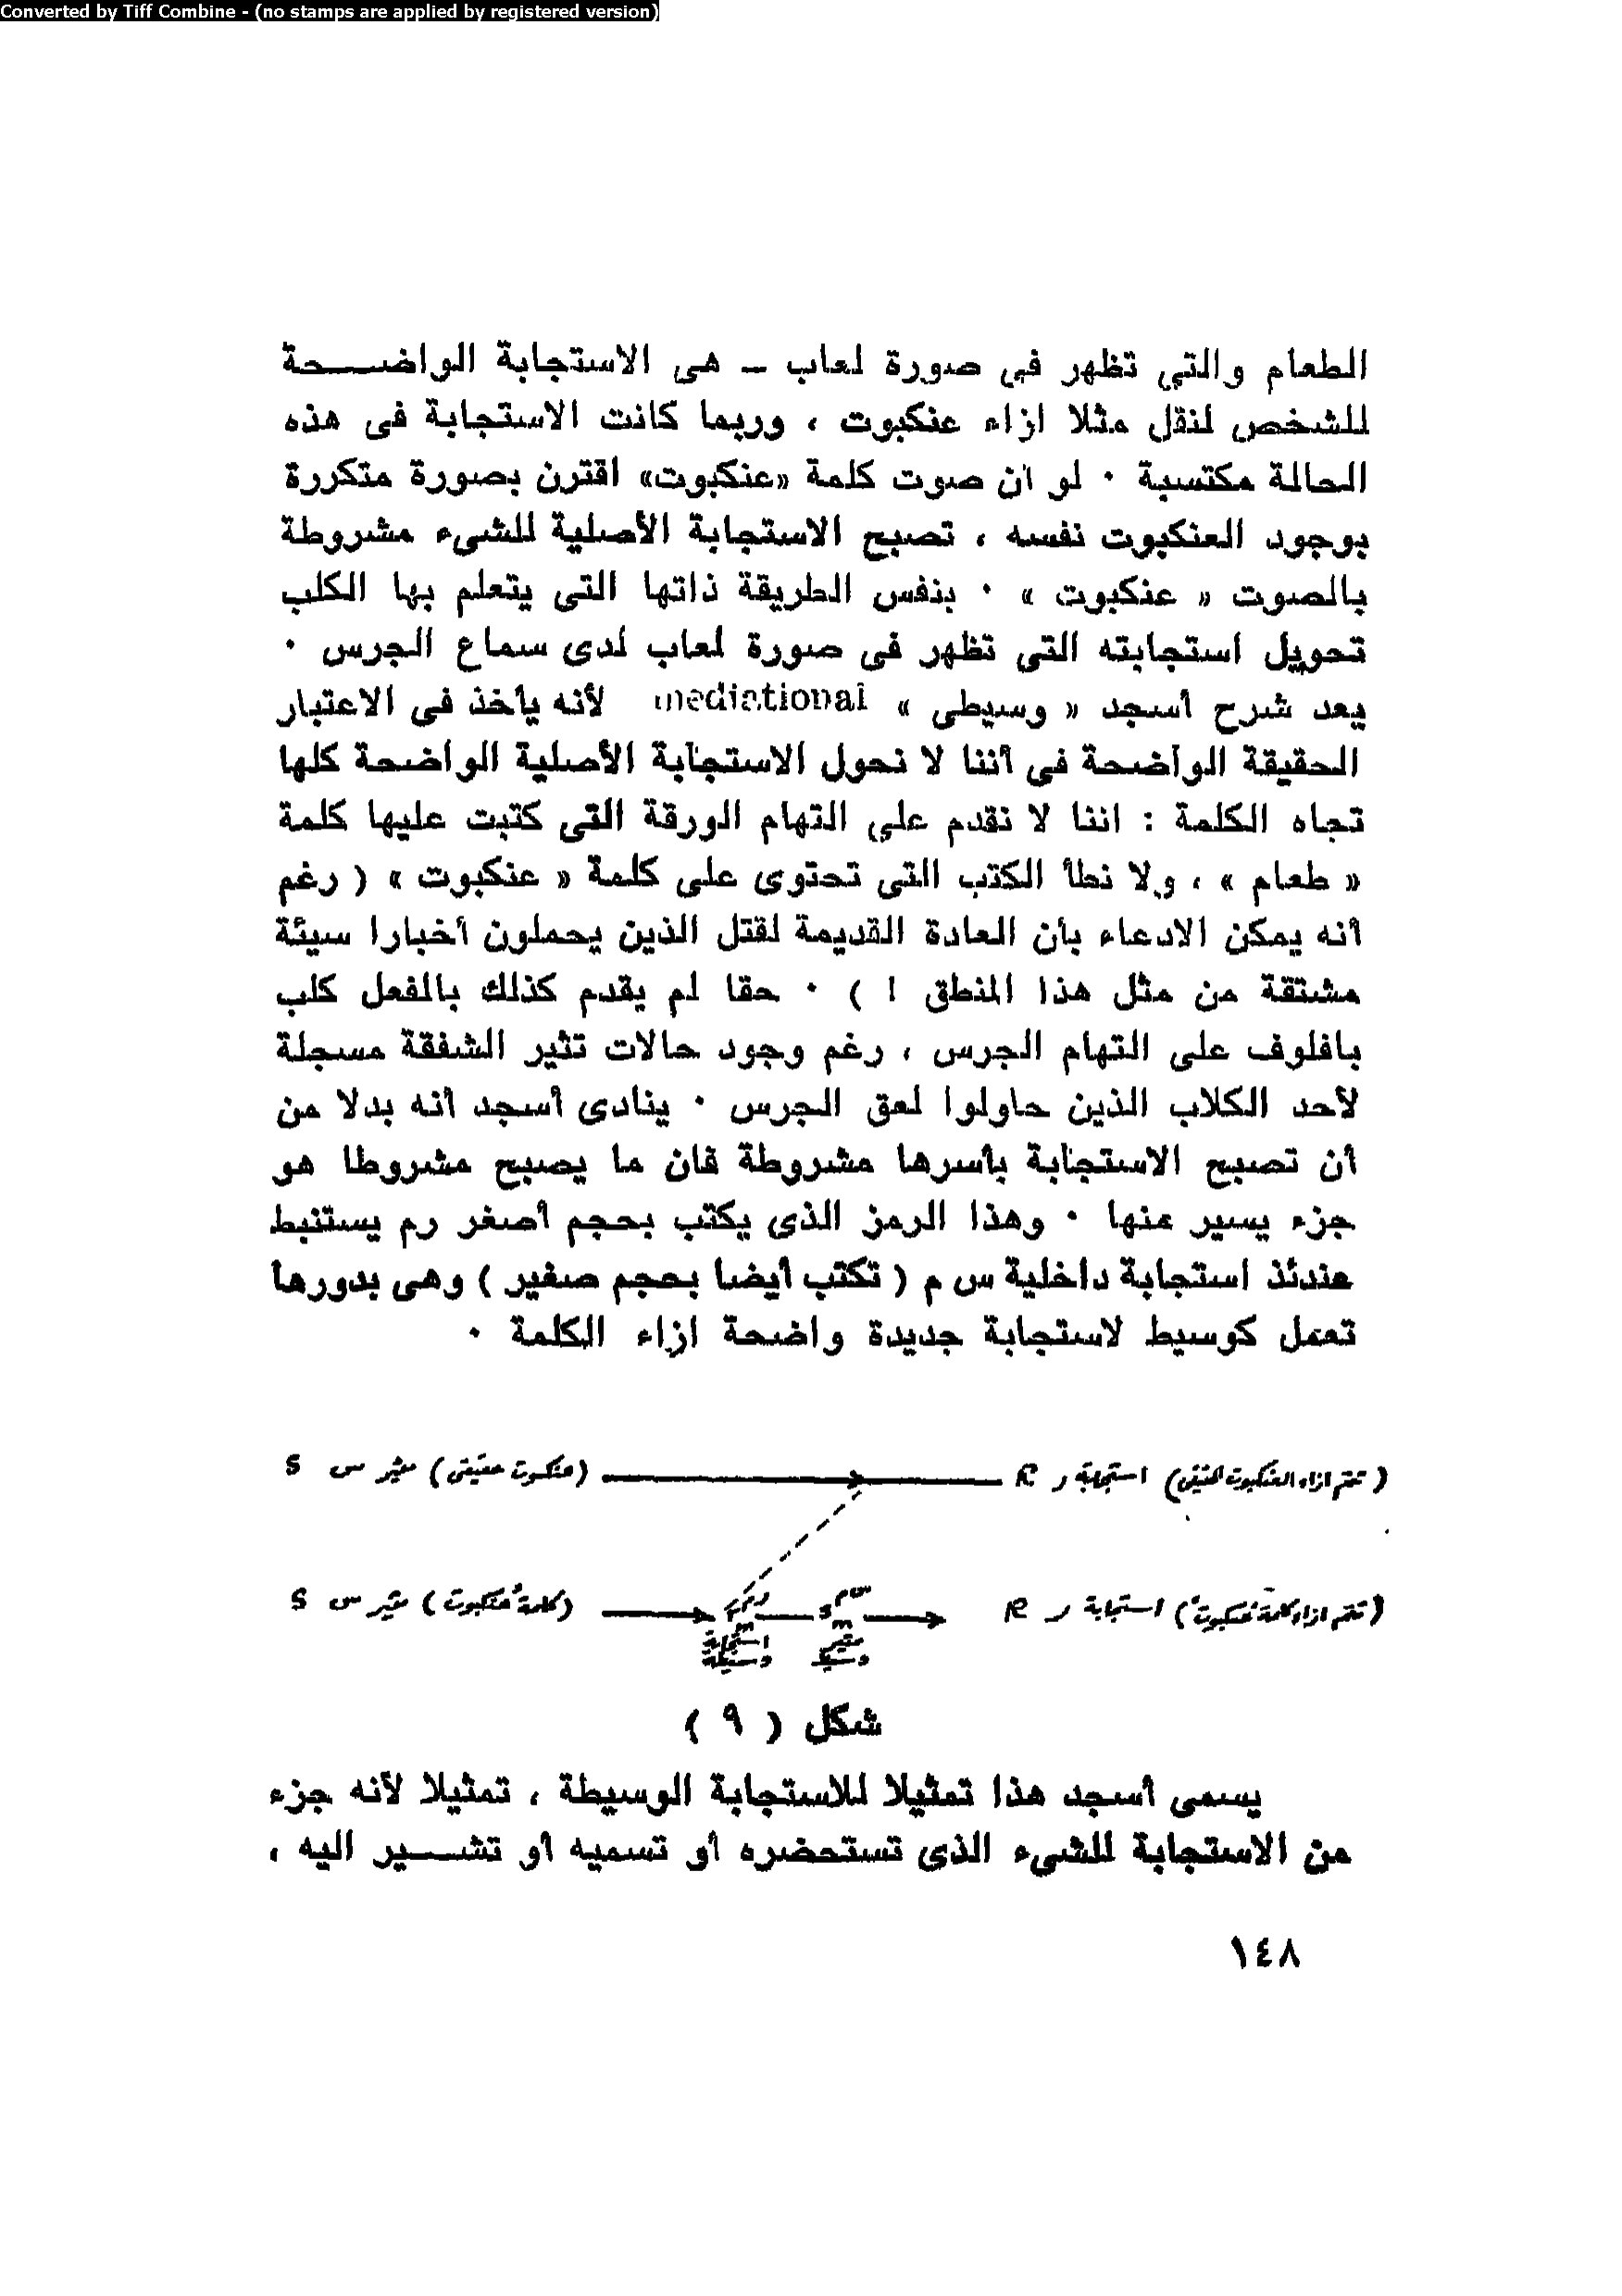 Converted by Tiff Combine - (no stamps are applied by registered version)
الطعام والتي تظهر في صورة لعاب – هي الاستجابة الواضـــحة
للشخص لنقل مثلا ازاء عنكبوت ، وربما كانت الاستجابة فى هذه
الحالة مكتسبة · لو أن صوت كلمة «عنكبوت» اقترن بصورة متكررة
بوجود العنكبوت نفسه ، تصبح الاستجابة الأصلية للشىء مشروطة
بالصوت « عنكبوت » · بنفس الطريقة ذاتها التى يتعلم بها الكلب
تحويل استجابته التى تظهر فى صورة لعاب لدى سماع الجرس ·
يعد شرح أسجد « وسيطى » mediational لأنه يأخذ فى الاعتبار
الحقيقة الواضحة فى أننا لا نحول الاستجابة الأصلية الواضحة كلها
تجاه الكلمة : اننا لا نقدم على التهام الورقة التى كتبت عليها كلمة
« طعام » ، ولا نطأ الكتب التى تحتوى على كلمة « عنكبوت » ( رغم
أنه يمكن الادعاء بأن العادة القديمة لقتل الذين يحملون أخبارا سيئة
مشتقة من مثل هذا المنطق ! ) · حقا لم يقدم كذلك بالفعل كلب
بافلوف على التهام الجرس ، رغم وجود حالات تثير الشفقة مسجلة
لأحد الكلاب الذين حاولوا لعق الجرس · ينادى أسجد أنه بدلا من
أن تصبح الاستجابة بأسرها مشروطة فان ما يصبح مشروطا هو
جزء يسير منها · وهذا الرمز الذى يكتب بحجم أصغر رم يستنبط
عندئذ استجابة داخلية س م ( تكتب أيضا بحجم صغير ) وهى بدورها
تعمل كوسيط لاستجابة جديدة واضحة ازاء الكلمة ·
(تتم ازاء العنكبوت الحقيقى) استجابة ر R (عنكبوت حقيقى) مثير س S
(تتم ازاء كلمة عنكبوت) استجابة ر R س م s m ر م m (كلمة عنكبوت) مثير س S
مثير وسيط استجابة وسيطة
شكل ( ٩ )
يسمى أسجد هذا تمثيلا للاستجابة الوسيطة ، تمثيلا لأنه جزء
من الاستجابة للشىء الذى تستحضره أو تسميه أو تشـــير اليه ،
١٤٨